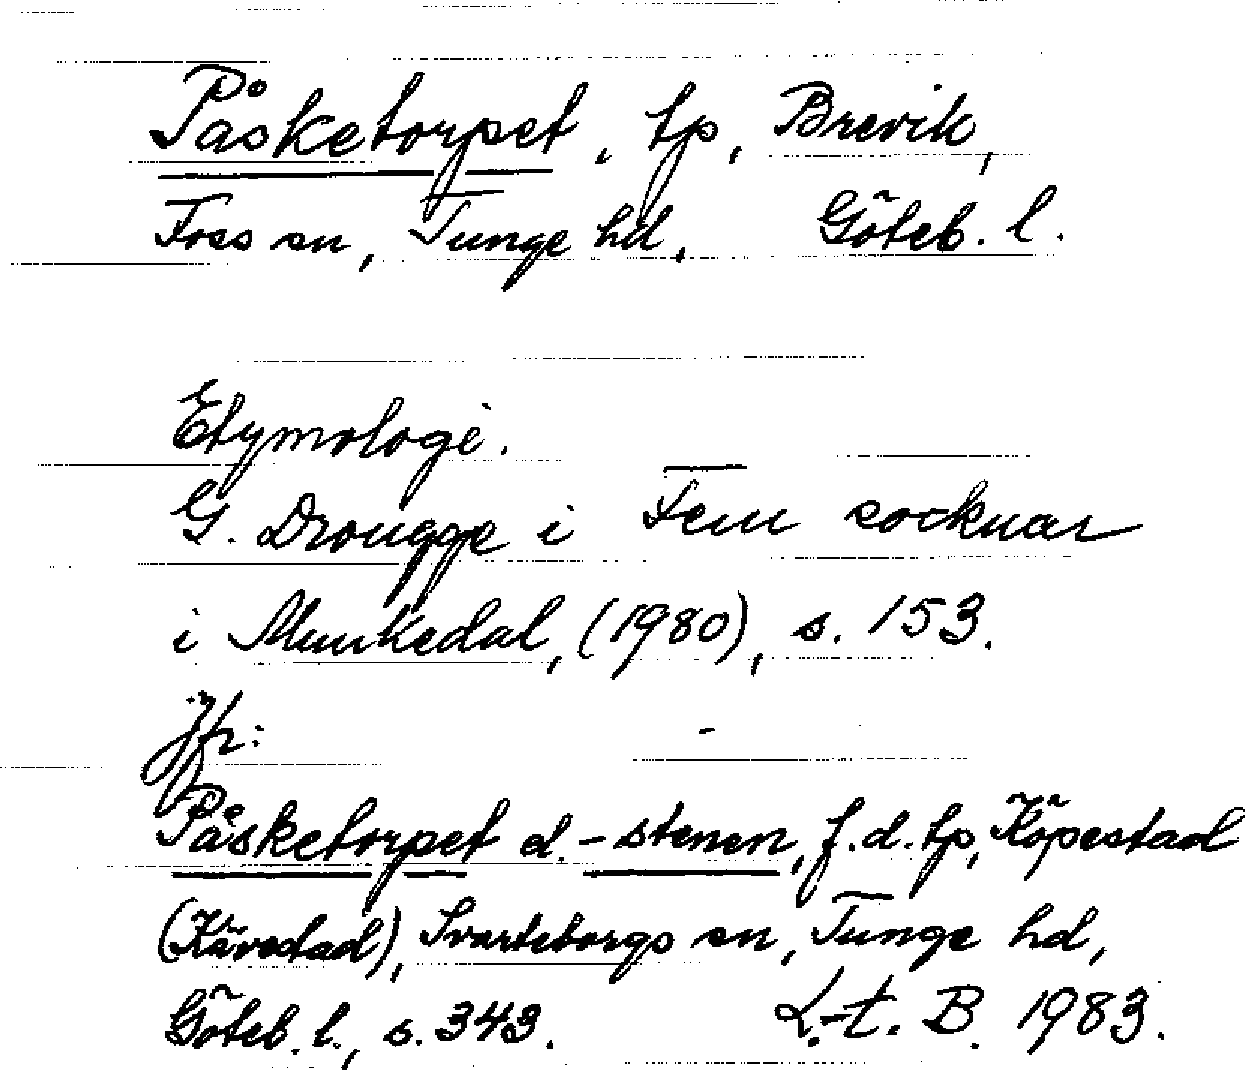 Påsketorpet, tp, Brevik,
Foss sn, Tunge hd. Göteb. l.
Etymologi.
G. Drougge i Fem socknar
i Munkedal, (1980), s. 153.
Jfr:
Påsketorpet d. -stenen, f.d. tp, Köpestad
(Kävestad), Svarteborgs sn, Tunge hd,
Göteb. l., s. 343. L.-t. B. 1983.